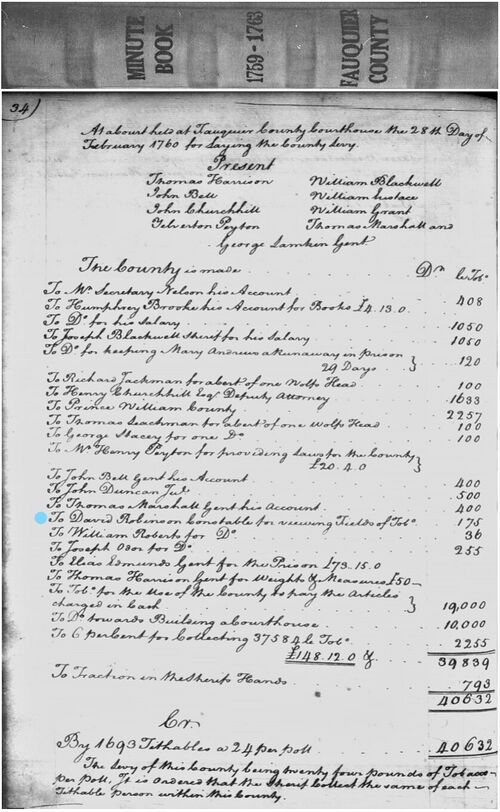 MINUTE BOOK
1759-1763
FAUQUIER COUNTY
34)
At a Court held at Fauquier County Courthouse the 28th Day of
February 1760 for Laying the County Levy.
Present
Thomas Harrison William Blackwell
John Bell William Eustace
John Churchhill William Grant
Yelverton Peyton Thomas Marshall and
George Lamkin Gent.
The County is made Dr. lb Tobo.
To Mr. Secretary Nelson his Account 408
To Humphry Brooke his Account for Books £4.13.0.
To Do. for his Salary 1050
To Joseph Blackwell Sherif for his Salary 1050
To Do. for keeping Mary Andrews a Runaway in prison
29 Days } 120
To Richard Jackman for a Cert of one Wolfs Head 100
To Henry Churchhill Esqr. Deputy Attorney 1633
To Prince William County 2257
To Thomas Leachman for a Cert of one Wolfs Head 100
To George Stacey for one Do. 100
To Mr. Henry Peyton for providing Laws for the County
£20.4.0 }
To John Bell Gent his Account 400
To John Duncan Junr. 500
To Thomas Marshall Gent his Account 400
To David Robinson Constable for viewing Fields of Tobo. 175
To William Roberts for Do. 36
To Joseph Odor for Do. 255
To Elias Edmunds Gent for the Prison £73.15.0
To Thomas Harrison Gent for Weights & Measures £50-
To Tobo. for the Use of the County to pay the Articles
charged in Cash } 19,000
To Do. towards Building a Courthouse 10,000
To 6 per Cent for Collecting 37584 lb Tobo. 2255
£148.12.0 & 39839
To Fraction in the Sherifs Hands 793
40632
Cr.
By 1693 Tithables @ 24 per poll 40632
The Levy of this County being twenty four pounds of Tobacco
per poll, It is Ordered that the Sherif Collect the same of each
Tithable person within this County.